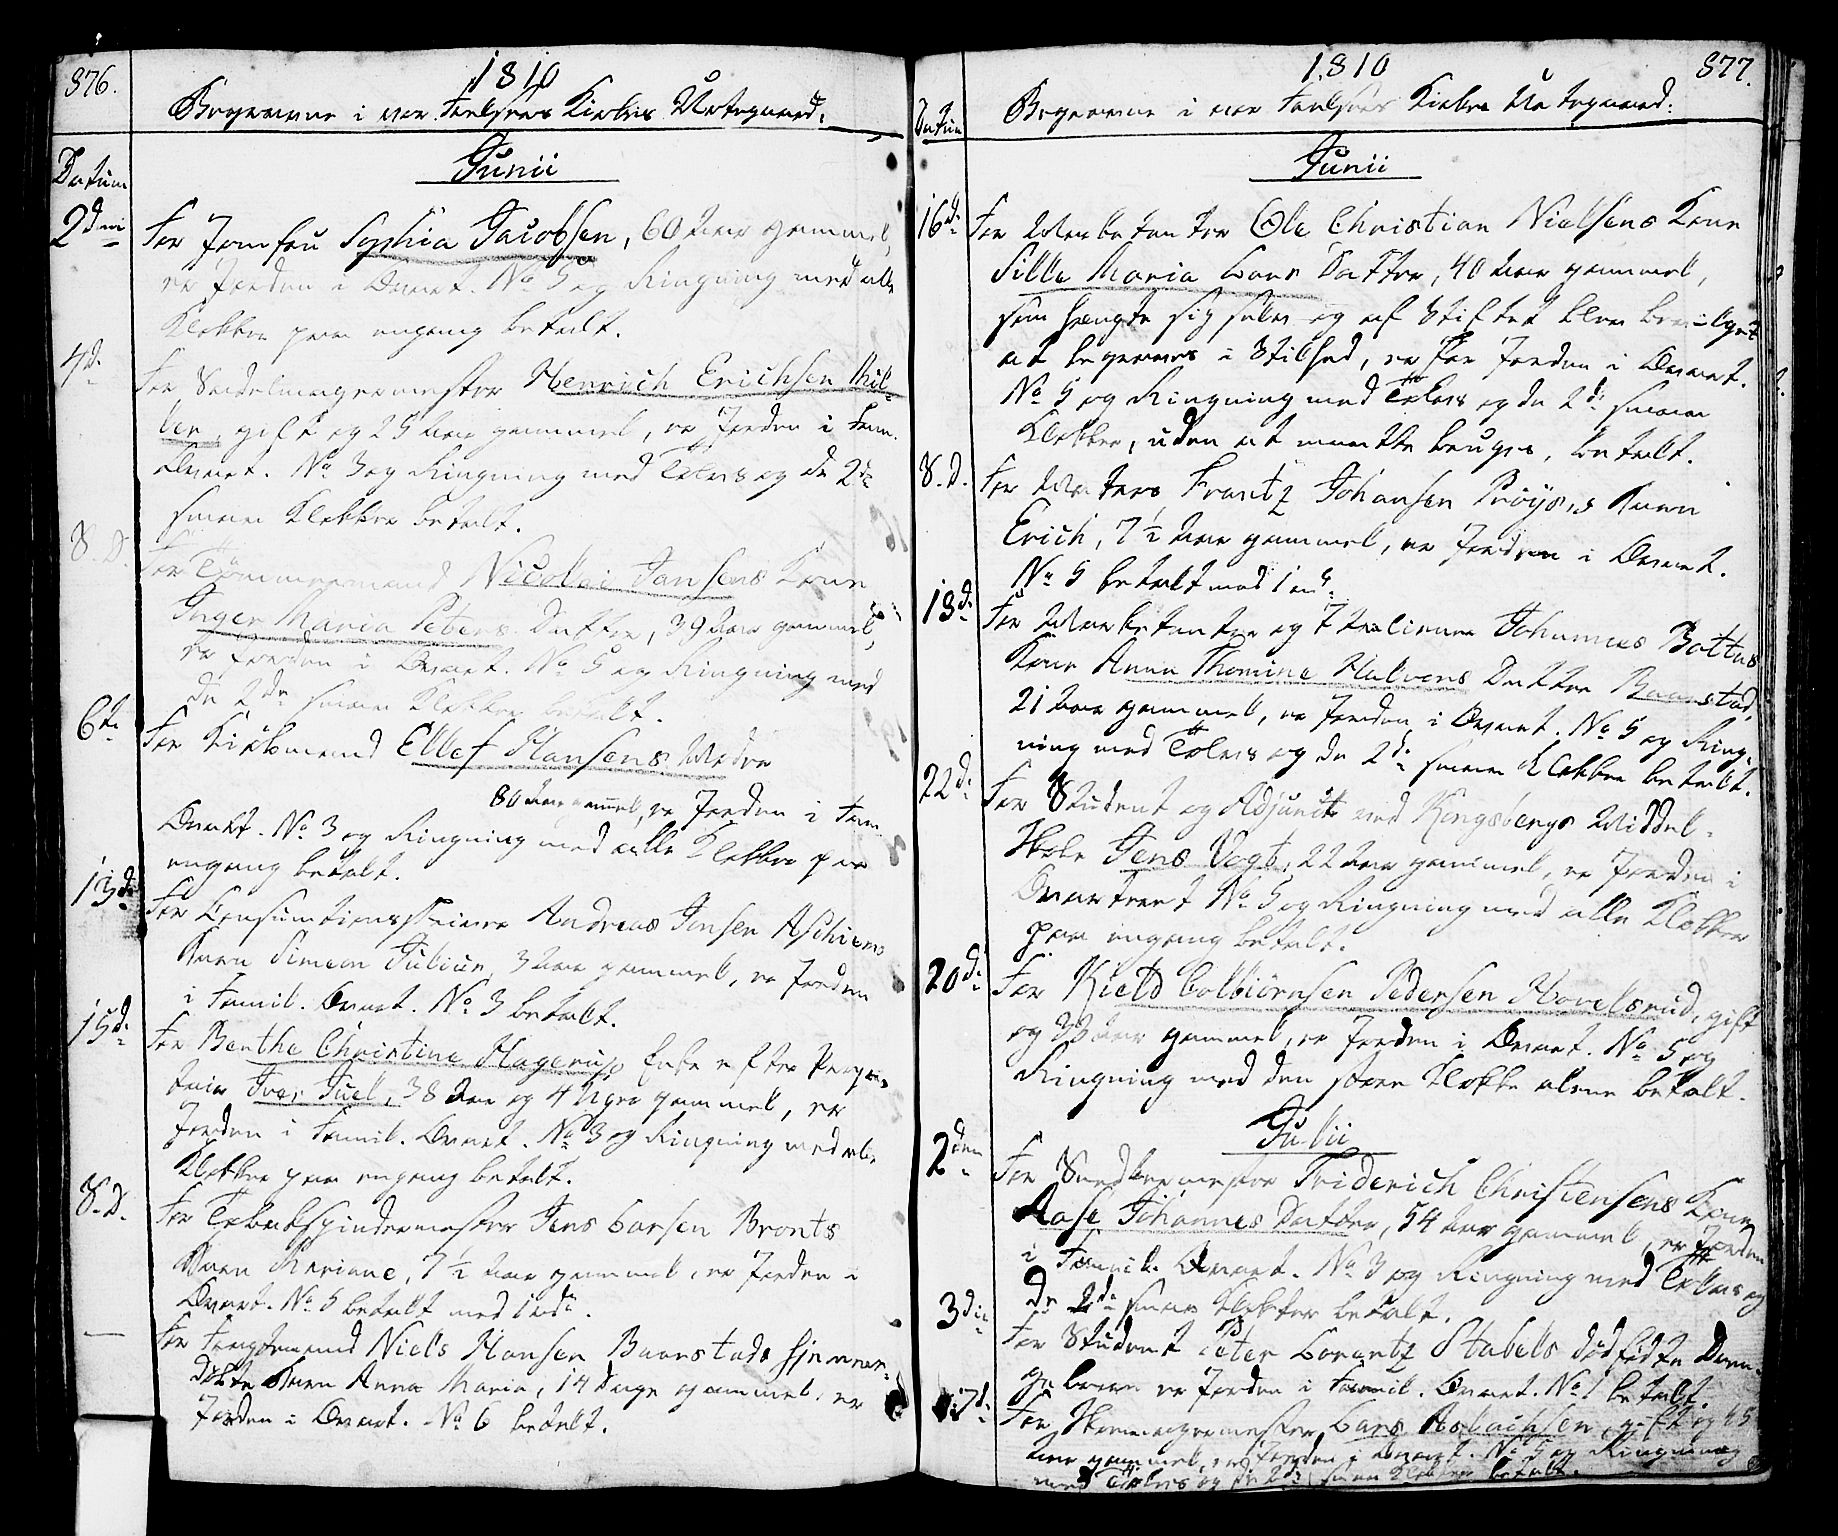 376.
1810
Begravne i vor Frelsers Kirkes Urtegaard.
Junii
Datum
2den
For Jomfru Sophia Jacobsen, 60 Aar gammel,
er Jorden i Qvart. No 5 og Ringning med alle
Klokker paa engang betalt.
4de
For Sadelmagermester Henrich Erichsen Mül-
ler, gift og 25 Aar gammel, er Jorden i Fam.
Qvart. No 3 og Ringning med Tolvs og de 2de
smaae Klokker betalt.
S. D.
For Tømmermand Nicolai Jansens Kone
Inger Maria Peders Datter, 39 Aar gammel,
er Jorden i Qvart. No 5 og Ringning med
de 2de smaae Klokker betalt.
6te
For Kiøbmand Ellef Hansens Moder
80 Aar gammel, er Jorden i Fam.
Qvart. No 3 og Ringning med alle Klokker paa
engang betalt.
13de
For Consumtionsskriver Andreas Jensen Aschiems
Barn Simeon Julius, 3 Aar gammel, er Jorden
i Famil. Qvart. No 3 betalt.
15de
For Berthe Christine Hagerup Enke efter
Iver Juel, 38 Aar og 4 Uger gammel, er
Jorden i Famil. Qvart. No 3 og Ringning med alle
Klokker paa engang betalt.
S. D.
For Tobakspindermester Jens Larsen Bronts
Barn Mariane, 7 1/2 Aar gammel, er Jorden i
Qvart. No 5 betalt med
For Niels Hansen Baarstads hjemme-
døbte Barn Anna Maria, 14 Dage gammel, er
Jorden i Qvart. No 6 betalt.
1810
377.
Begravne i vor Frelsers Kirkes Urtegaard.
Datum
Junii
16de
For Ole Christian Nielsens Kone
Sille Maria Lars Datter, 40 Aar gammel,
som hængte sig selv og af Stiftet blev bevilget
at begraves i Stilhed, er for Jorden i Qvart.
No 5 og Ringning med Tolvs og de 2de smaae
Klokker, uden at maatte bruges, betalt.
S. D.
For Frantz Johansen Prøys,s Barn
Erich, 7 1/2 Aar gammel, er Jorden i Qvart.
No 5 betalt med
18de
For og Johannes Battus
Kone Anne Thomine Halvors Datter Baarstad,
21 Aar gammel, er Jorden i Qvart. No 5 og Ring-
ning med Tolvs og de 2de smaae Klokker betalt.
22de
For Student og Adjunct ved Kongsbergs Middel-
Skole Jens Vogt, 22 Aar gammel, er Jorden i
Qvarteret No 5 og Ringning med alle Klokker
paa engang betalt.
20de
For Kield Colbiørnsen Pedersen Hovelsrud, gift
og 33 Aar gammel, er Jorden i Qvart. No 5 og
Ringning med den store Klokke alene betalt.
Julii
2den
For Snedkermester Friderich Christensens Kone
Aase Johannes Datter, 54 Aar gammel, er Jorden
i Famil. Qvart. No 3 og Ringning med Tolvs og
de 2de smaae Klokker betalt.
3die
For Student Peter Lorentz Stabels dødfødte Dren-
gebarn er Jorden i Famil. Qvart. No 1 betalt.
7de
For Skomagermester Lars Asbachsen, gift og 45
Aar gammel, er Jorden i Qvart. No 5 og Ringning
med Tolvs og de 2de smaae Klokker betalt.